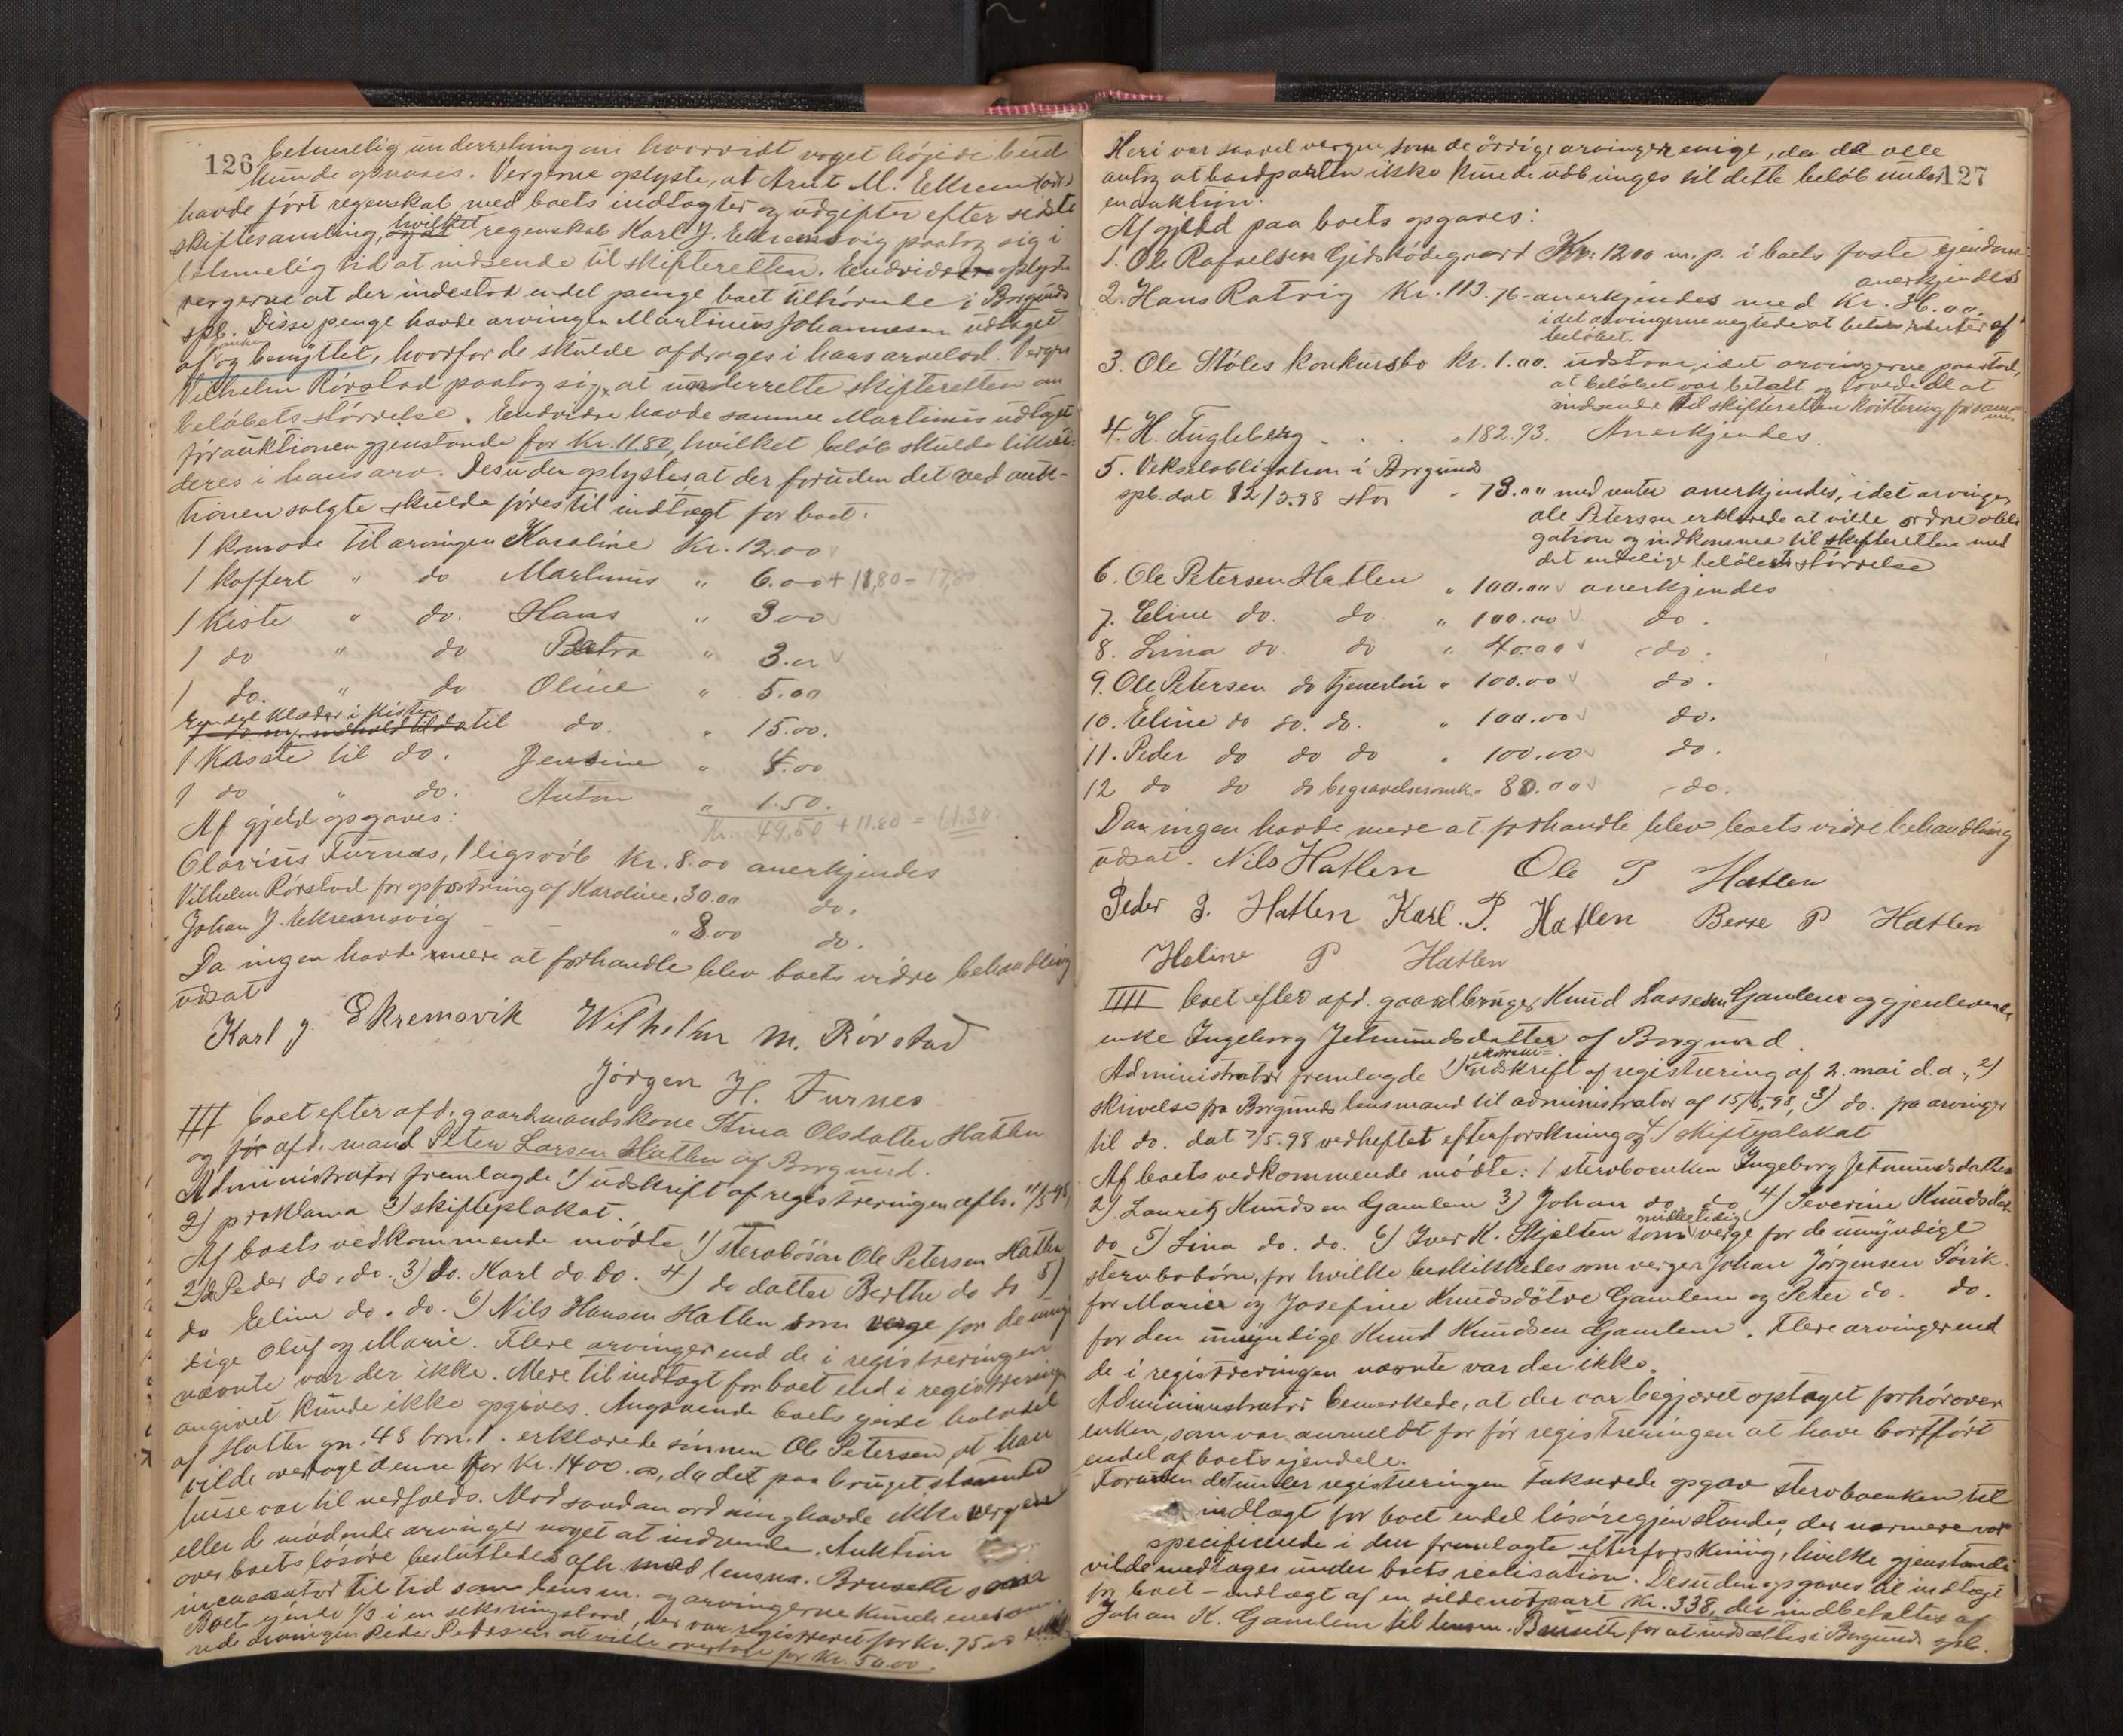 126
betimelig underretning om hvorvidt noget højere bud
kunde opnaaes. Vergerne oplyste, at Arnt M. Ekrem
havde ført regenskab med boets indtægter og udgifter efter sidste
skiftesamling, hvilket regenskab Karl J. Ekremsvig paatog sig i
betimelig tid at indsende til skifteretten. Endvidere oplyste
vergerne at der indestod endel penge boet tilhørende i Borgunds
spb. Disse penge havde arvingen Martinus Johannesen udtaget
af og benyttet, hvorfor de skulde afdrages i hans arvelod. Vergen
Vilhelm Rørstad paatog sig, at underrette skifteretten om
beløbets størrelse. Endvidere havde samme Martinus udtaget
før auktionen gjenstande for Kr. 11.80, hvilket beløb skulde likvi-
deres i hans arv. Desuden oplystes at der foruden det ved auk-
tionen solgte skulde føres til indtægt for boet:
1 komode til arvingen Karoline Kr. 12.00
1 koffert " do Martinus " 6.00 + 11,80 = 17,80
1 kiste " do. Hans " 3.00
1 do " do Petra " 3.00
1 do. " do Oline " 5.00
klæder i kisten til do. " 15.00.
1 Kasste til do. Jensine " 4.00
1 do " do. Anton " 1.50.
Kr. 49,50 + 11.80 = 61.30
Af gjeld opgaves:
Olavius Furnæs, 1 ligsvøb Kr. 8.00 anerkjendes
Vilhelm Rørstad for opfostring af Karoline " 30.00 do.
Johan J. Ekremsvig " 8.00 do.
Da ingen havde mere at forhandle blev boets vidre behandling
udsat
Karl J. Ekremsvik Wilhelm M. Rørstad
Jørgen H. Furnes
III boet efter afd. gaardmandskone Stina Olsdatter Hatlen
og før afd. mand Peter Larsen Hatlen af Borgund.
Administrator fremlagde 1) udskrift af registreringen afh. 11/5 98,
2) proklama 3) skifteplakat.
Af boets vedkommende mødte 1) stervbosøn Ole Petersen Hatlen
2) Peder do. do. 3) do. Karl do. do. 4) do datter Berthe do do 5)
do Eline do. do. 6) Nils Hansen Hatlen som verge for de umyn-
dige Oluf og Marie. Flere arvinger end de i registreringen
nævnte var der ikke. Mere til indtægt for boet end i registreringen
angivet kunde ikke opgives. Angaaende boets eiende halvdel
af Hatlen gn. 48 brn. 1. erklærede sønnen Ole Petersen, at han
vilde overtage denne for Kr. 1400.00, da det paa bruget staaende
huse var til nedfalds. Mod saadan ordning havde ikke vergen
eller de mødende arvinger noget at indvende. Auktion
over boets løsøre besluttedes afh. med lensm. Brusetto som
incassator til tid som lensm. og arvingerne kunde enes om.
Boet eiende 1/3 i en seksringsbaad, der var registreret for kr. 75.00
arvingen Peder Petersen at ville overtage for Kr. 50.00.
127
Heri var saavel vergen som de øvrige arvinger enige, da de alle
antog at baadparten ikke kunde udbringes til dette beløb under
en auktion.
Af gjeld paa boets opgaves:
1. Ole Rafaelsen Gjidskødegaard Kr. 1200 m. p. i boets faste eiendom
anerkjendes
2. Hans Ratvig Kr. 113.76 - anerkjendes med Kr. .00.
idet arvingerne negtede at betale renter af
beløbet.
3. Ole Støles konkursbo Kr. 1.00. udstaar, idet arvingerne paastod,
at beløbet var betalt og lovede de at
indsende til skifteretten kvittering for samme.
4. H. Fugleberg . . . " 182.93. Anerkjendes.
5. Vekselobligation i Borgunds
spb. dat 12/3-98 stor " 73.00 med renter anerkjendes, idet arvingen
Ole Petersen erklærede at ville ordne obli-
gation og indkomme til skifteretten med
det endelige beløbets størrelse
6. Ole Petersen Hatlen " 100.00 anerkjendes
7. Eline do. do. " 100.00 do.
8. Lina do. do " 40.00 do.
9. Ole Petersen do tjenerløn " 100.00 do.
10. Eline do do. do. " 100.00 do.
11. Peder do do do " 100.00 do.
12 do do do begravelsesomk. " 80.00 do.
Da ingen havde mere at forhandle blev boets vidre behandling
udsat. Nils Hatlen Ole P Hatlen
Peder P. Hatlen Karl. P. Hatlen Berte P Hatlen
Heline P Hatlen
IIII boet efter afd. gaardbruger Knud Lassesen Gamlem og gjenlevende
enke Ingeborg Jetmundsdatter af Borgund.
Administrator fremlagde 1) ekstrakt- udskrift af registrering af 2. mai d.a., 2)
skrivelse fra Borgunds lensmand til administrator af 15/5 98, 3) do. fra arvinger
til do. dat 7/5. 98 vedheftet efterforskning og 4) skifteplakat
Af boets vedkommende mødte: 1 stervboenken Ingeborg Jetmundsdatter
2) Lauritz Knudsen Gamlem 3) Johan do do 4) Severine Knudsdatter
do 5) Lina do. do. 6) Iver K. Skjelten som midlertidig verge for de umyndige
stervbobørn, for hvilke beskikkedes som verger Johan Jørgensen Søvik
for Marie og Josefine Knudsdøtre Gamlem og Peter do. do.
for den umyndige Knud Knudsen Gamlem. Flere arvinger end
de i registreringen nævnte var der ikke.
Administrator bemerkede, at der var begjæret optaget forhør over
enken, som var anmeldt for før registreringen at have bortført
endel af boets eiendele.
Foruden det under registreringen takserede opgav stervboenken til
indtægt for boet endel løsøregjenstande, der nærmere var
specificerede i den fremlagte efterforskning, hvilke gjenstande
vilde medtages under boets realisation. Desuden opgaves til indtægt
for boet - indtægt af en sildenotpart Kr. 338, der indbetaltes af
Johan K. Gamlem til lensm. Brusetto for at indsættes i Borgunds spb.